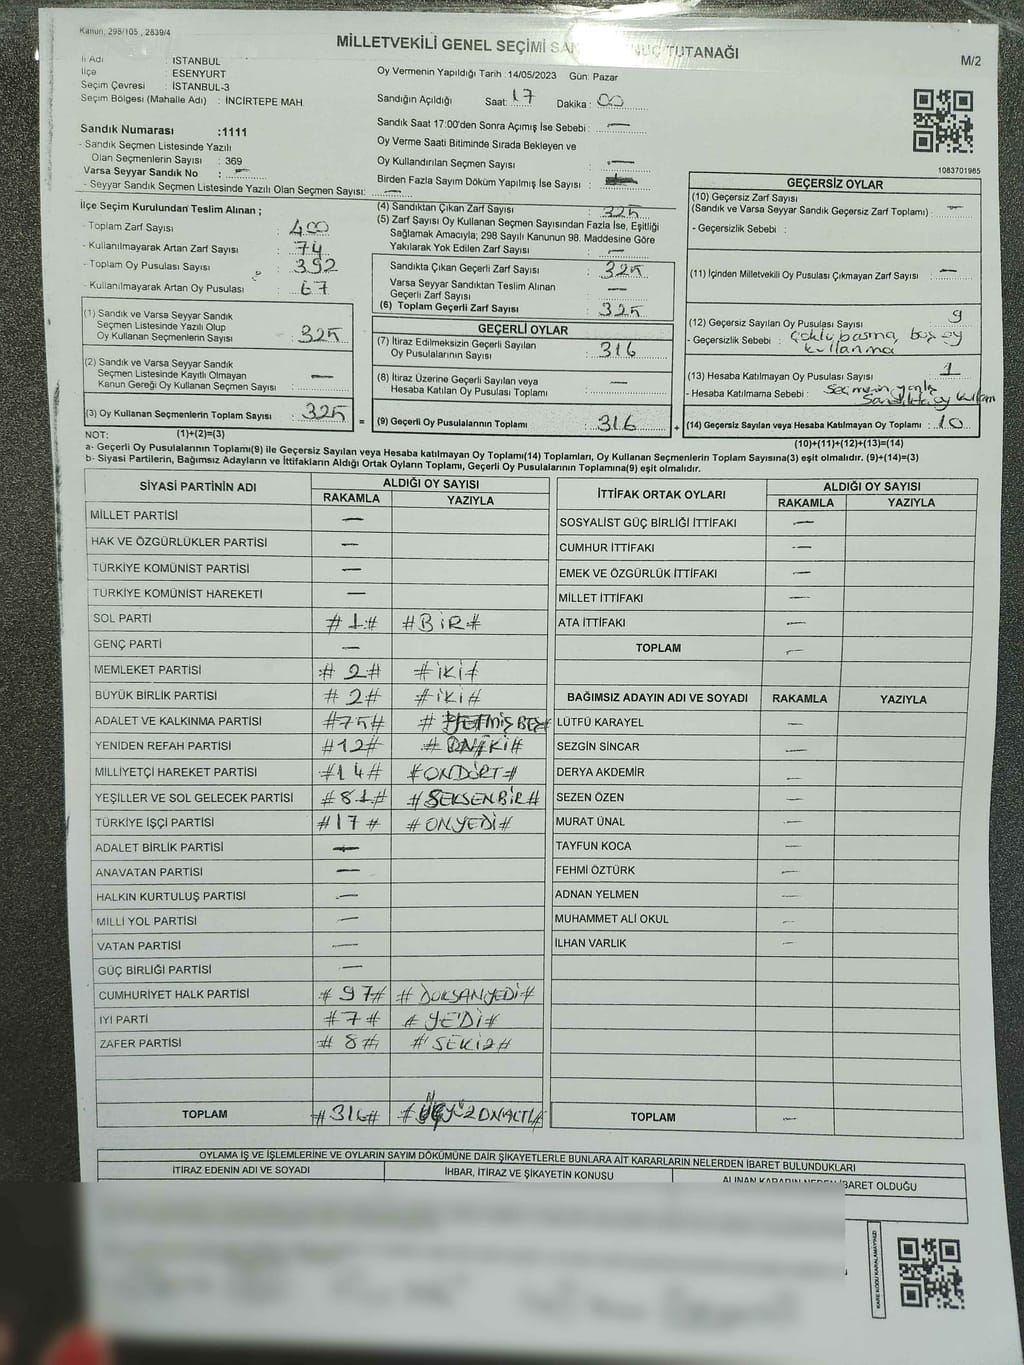 Kanun, 298/105 , 2839/4
MİLLETVEKİLİ GENEL SEÇİMİ TUTANAĞI
M/2
İl Adı : İSTANBUL
İlçe : ESENYURT
Seçim Çevresi : İSTANBUL-3
Seçim Bölgesi (Mahalle Adı) : İNCİRTEPE MAH.
Oy Vermenin Yapıldığı Tarih : 14/05/2023 Gün: Pazar
Sandığın Açıldığı Saat: 17 Dakika : 00
Sandık Saat 17:00'den Sonra Açımış İse Sebebi : —
Oy Verme Saati Bitiminde Sırada Bekleyen ve
Oy Kullandırılan Seçmen Sayısı : —
Birden Fazla Sayım Döküm Yapılmış İse Sayısı :
Sandık Numarası :1111
- Sandık Seçmen Listesinde Yazılı
Olan Seçmenlerin Sayısı : 369
Varsa Seyyar Sandık No : —
- Seyyar Sandık Seçmen Listesinde Yazılı Olan Seçmen Sayısı: —
1083701985
İlçe Seçim Kurulundan Teslim Alınan ;
- Toplam Zarf Sayısı : 400
- Kullanılmayarak Artan Zarf Sayısı : 74
- Toplam Oy Pusulası Sayısı : 392
- Kullanılmayarak Artan Oy Pusulası : 67
(1) Sandık ve Varsa Seyyar Sandık
Seçmen Listesinde Yazılı Olup
Oy Kullanan Seçmenlerin Sayısı : 325
(2) Sandık ve Varsa Seyyar Sandık
Seçmen Listesinde Kayıtlı Olmayan
Kanun Gereği Oy Kullanan Seçmen Sayısı : —
(3) Oy Kullanan Seçmenlerin Toplam Sayısı : 325
(1)+(2)=(3)
(4) Sandıktan Çıkan Zarf Sayısı : 325
(5) Zarf Sayısı Oy Kullanan Seçmen Sayısından Fazla İse, Eşitliği
Sağlamak Amacıyla; 298 Sayılı Kanunun 98. Maddesine Göre
Yakılarak Yok Edilen Zarf Sayısı : —
Sandıkta Çıkan Geçerli Zarf Sayısı : 325
Varsa Seyyar Sandıktan Teslim Alınan
Geçerli Zarf Sayısı : —
(6) Toplam Geçerli Zarf Sayısı : 325
GEÇERLİ OYLAR
(7) İtiraz Edilmeksizin Geçerli Sayılan
Oy Pusulalarının Sayısı : 316
(8) İtiraz Üzerine Geçerli Sayılan veya
Hesaba Katılan Oy Pusulası Toplamı : —
= (9) Geçerli Oy Pusulalarının Toplamı : 316
GEÇERSİZ OYLAR
(10) Geçersiz Zarf Sayısı
(Sandık ve Varsa Seyyar Sandık Geçersiz Zarf Toplamı) : —
- Geçersizlik Sebebi :
(11) İçinden Milletvekili Oy Pusulası Çıkmayan Zarf Sayısı : —
(12) Geçersiz Sayılan Oy Pusulası Sayısı : 9
- Geçersizlik Sebebi : Çoklu basma, boş oy
kullanma
(13) Hesaba Katılmayan Oy Pusulası Sayısı : 1
- Hesaba Katılmama Sebebi : Seçmenin yanlış
Sandıkta oy kullanm
+ (14) Geçersiz Sayılan veya Hesaba Katılmayan Oy Toplamı : 10
(10)+(11)+(12)+(13)=(14)
NOT:
a- Geçerli Oy Pusulalarının Toplamı(9) ile Geçersiz Sayılan veya Hesaba katılmayan Oy Toplamı(14) Toplamları, Oy Kullanan Seçmenlerin Toplam Sayısına(3) eşit olmalıdır. (9)+(14)=(3)
b- Siyasi Partilerin, Bağımsız Adayların ve İttifakların Aldığı Ortak Oyların Toplamı, Geçerli Oy Pusulalarının Toplamına(9) eşit olmalıdır.
SİYASİ PARTİNİN ADI ALDIĞI OY SAYISI
RAKAMLA YAZIYLA
MİLLET PARTİSİ —
HAK VE ÖZGÜRLÜKLER PARTİSİ —
TÜRKİYE KOMÜNİST PARTİSİ —
TÜRKİYE KOMÜNİST HAREKETİ —
SOL PARTİ #1# #BİR#
GENÇ PARTİ —
MEMLEKET PARTİSİ #2# #İKİ#
BÜYÜK BİRLİK PARTİSİ #2# #İKİ#
ADALET VE KALKINMA PARTİSİ #75# #YETMİŞBEŞ#
YENİDEN REFAH PARTİSİ #12# #ONİKİ#
MİLLİYETÇİ HAREKET PARTİSİ #14# #ONDÖRT#
YEŞİLLER VE SOL GELECEK PARTİSİ #81# #SEKSENBİR#
TÜRKİYE İŞÇİ PARTİSİ #17# #ONYEDİ#
ADALET BİRLİK PARTİSİ —
ANAVATAN PARTİSİ —
HALKIN KURTULUŞ PARTİSİ —
MİLLİ YOL PARTİSİ —
VATAN PARTİSİ —
GÜÇ BİRLİĞİ PARTİSİ —
CUMHURİYET HALK PARTİSİ #97# #DOKSANYEDİ#
İYİ PARTİ #7# #YEDİ#
ZAFER PARTİSİ #8# #SEKİZ#
TOPLAM #316# #ÜÇYÜZONALTI#
İTTİFAK ORTAK OYLARI ALDIĞI OY SAYISI
RAKAMLA YAZIYLA
SOSYALİST GÜÇ BİRLİĞİ İTTİFAKI —
CUMHUR İTTİFAKI —
EMEK VE ÖZGÜRLÜK İTTİFAKI —
MİLLET İTTİFAKI —
ATA İTTİFAKI —
TOPLAM —
BAĞIMSIZ ADAYIN ADI VE SOYADI RAKAMLA YAZIYLA
LÜTFÜ KARAYEL —
SEZGİN SİNCAR —
DERYA AKDEMİR —
SEZEN ÖZEN —
MURAT ÜNAL —
TAYFUN KOCA —
FEHMİ ÖZTÜRK —
ADNAN YELMEN —
MUHAMMET ALİ OKUL —
İLHAN VARLIK —
TOPLAM —
OYLAMA İŞ VE İŞLEMLERİNE VE OYLARIN SAYIM DÖKÜMÜNE DAİR ŞİKAYETLERLE BUNLARA AİT KARARLARIN NELERDEN İBARET BULUNDUKLARI
İTİRAZ EDENİN ADI VE SOYADI İHBAR, İTİRAZ VE ŞİKAYETİN KONUSU ALINAN KARARIN NEDEN İBARET OLDUĞU
KARE KODU KARALAMAYINIZ!